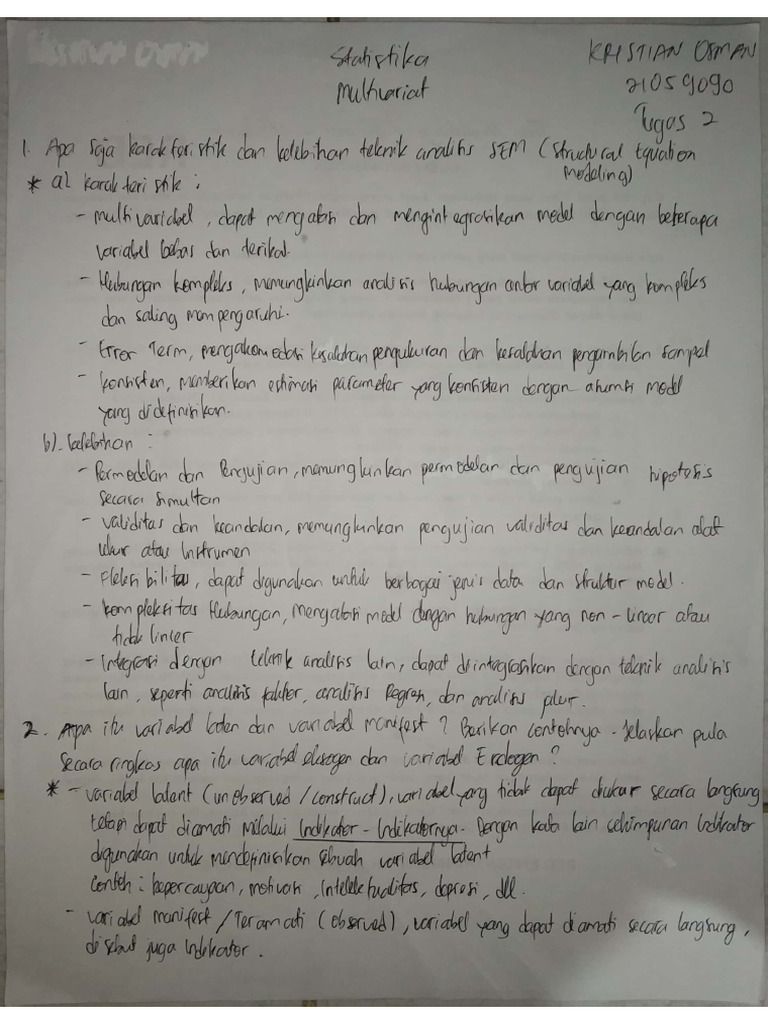 Statistika
Multivariat
KRISTIAN OSMAN
21059090
Tugas 2
1. Apa saja karakteristik dan kelebihan teknik analisis SEM (Structural Equation
Modeling)
* a) karakteristik :
- Multivariabel, dapat mengatasi dan mengintegrasikan model dengan beberapa
variabel bebas dan terikat.
- Hubungan kompleks, memungkinkan analisis hubungan antar variabel yang kompleks
dan saling mempengaruhi.
- Error Term, mengakomodasi kesalahan pengukuran dan kesalahan pengambilan sampel
- konsisten, memberikan estimasi parameter yang konsisten dengan asumsi model
yang didefinisikan.
b). kelebihan :
- Permodelan dan Pengujian, memungkinkan permodelan dan pengujian hipotesis
secara simultan
- validitas dan keandalan, memungkinkan pengujian validitas dan keandalan alat
ukur atau Instrumen
- Fleksibilitas, dapat digunakan untuk berbagai jenis data dan struktur model.
- kompleksitas Hubungan, mengatasi model dengan hubungan yang non-linear atau
tidak linier
- Integrasi dengan teknik analisis lain, dapat diintegrasikan dengan teknik analisis
lain, seperti analisis faktor, analisis Regresi, dan analisis jalur.
2. Apa itu variabel laten dan variabel manifest ? Berikan contohnya - Jelaskan pula
secara ringkas apa itu variabel eksogen dan variabel Endogen ?
* - variabel latent (unobserved / construct), variabel yang tidak dapat diukur secara langsung
tetapi dapat diamati melalui Indikator-Indikaternya. Dengan kata lain sehimpunan Indikator
digunakan untuk mendefinisikan sebuah variabel latent
Contoh : kepercayaan, motivasi, Intelektualitas, depresi, dll.
- variabel manifest / Teramati (observed), variabel yang dapat diamati secara langsung,
disebut juga Indikator.